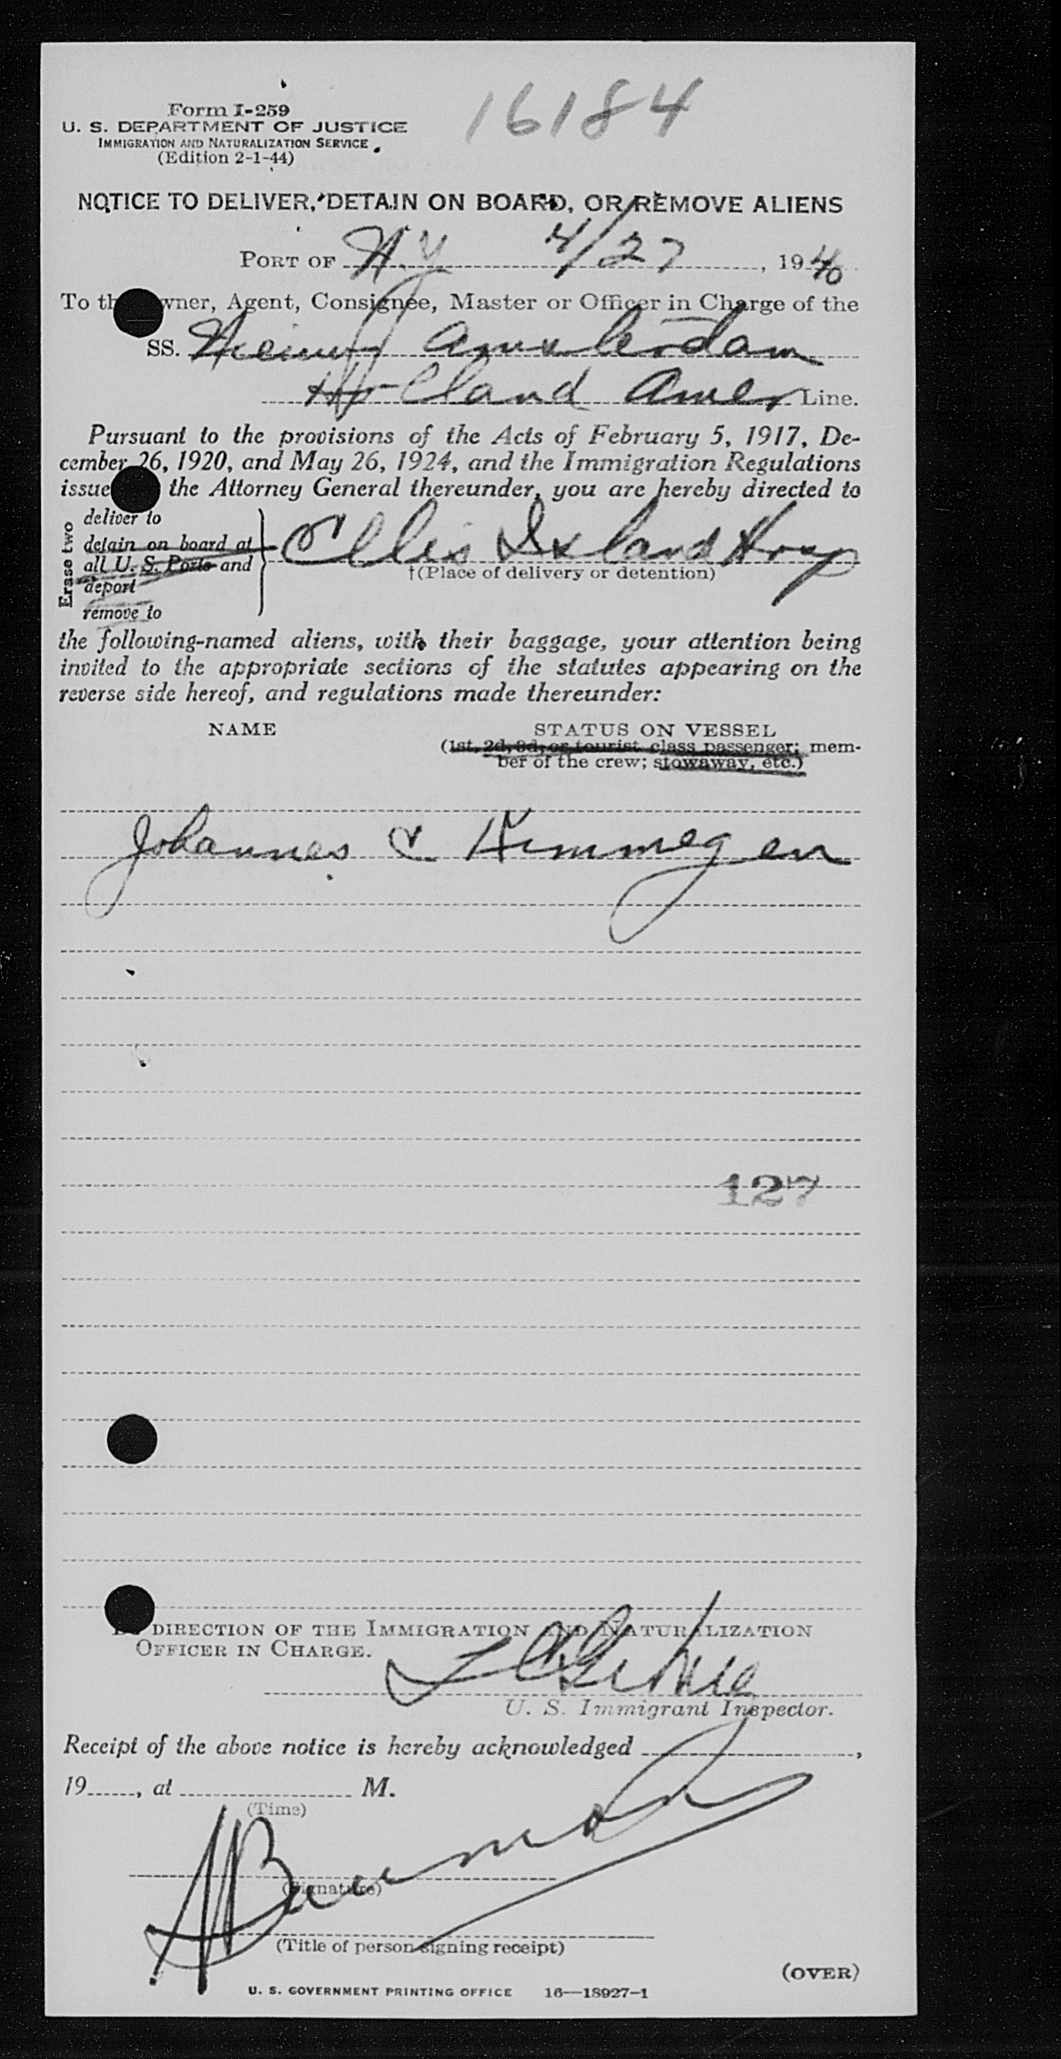 Form I-259
16184
U. S. DEPARTMENT OF JUSTICE
IMMIGRATION AND NATURALIZATION SERVICE
(Edition 2-1-44)
NOTICE TO DELIVER, DETAIN ON BOARD, OR REMOVE ALIENS
PORT OF N.Y 4/27, 1940
To th wner, Agent, Consignee, Master or Officer in Charge of the
SS. Nieuw Amsterdam
Holland Amer Line.
Pursuant to the provisions of the Acts of February 5, 1917, De-
cember 26, 1920, and May 26, 1924, and the Immigration Regulations
issue the Attorney General thereunder, you are hereby directed to
Erase two
deliver to
detain on board at
all U. S. Ports and
deport
remove to
Ellis Island Hosp
†(Place of delivery or detention)
the following-named aliens, with their baggage, your attention being
invited to the appropriate sections of the statutes appearing on the
reverse side hereof, and regulations made thereunder:
NAME STATUS ON VESSEL
(1st, 2d, 3d, or tourist class passenger; mem-
ber of the crew; stowaway, etc.)
Johannes C Kimmegen
127
DIRECTION OF THE IMMIGRATION AND NATURALIZATION
OFFICER IN CHARGE.
U. S. Immigrant Inspector.
Receipt of the above notice is hereby acknowledged ,
19 , at M.
(Time)
(Signature)
(Title of person signing receipt)
(OVER)
U. S. GOVERNMENT PRINTING OFFICE 16—18927-1